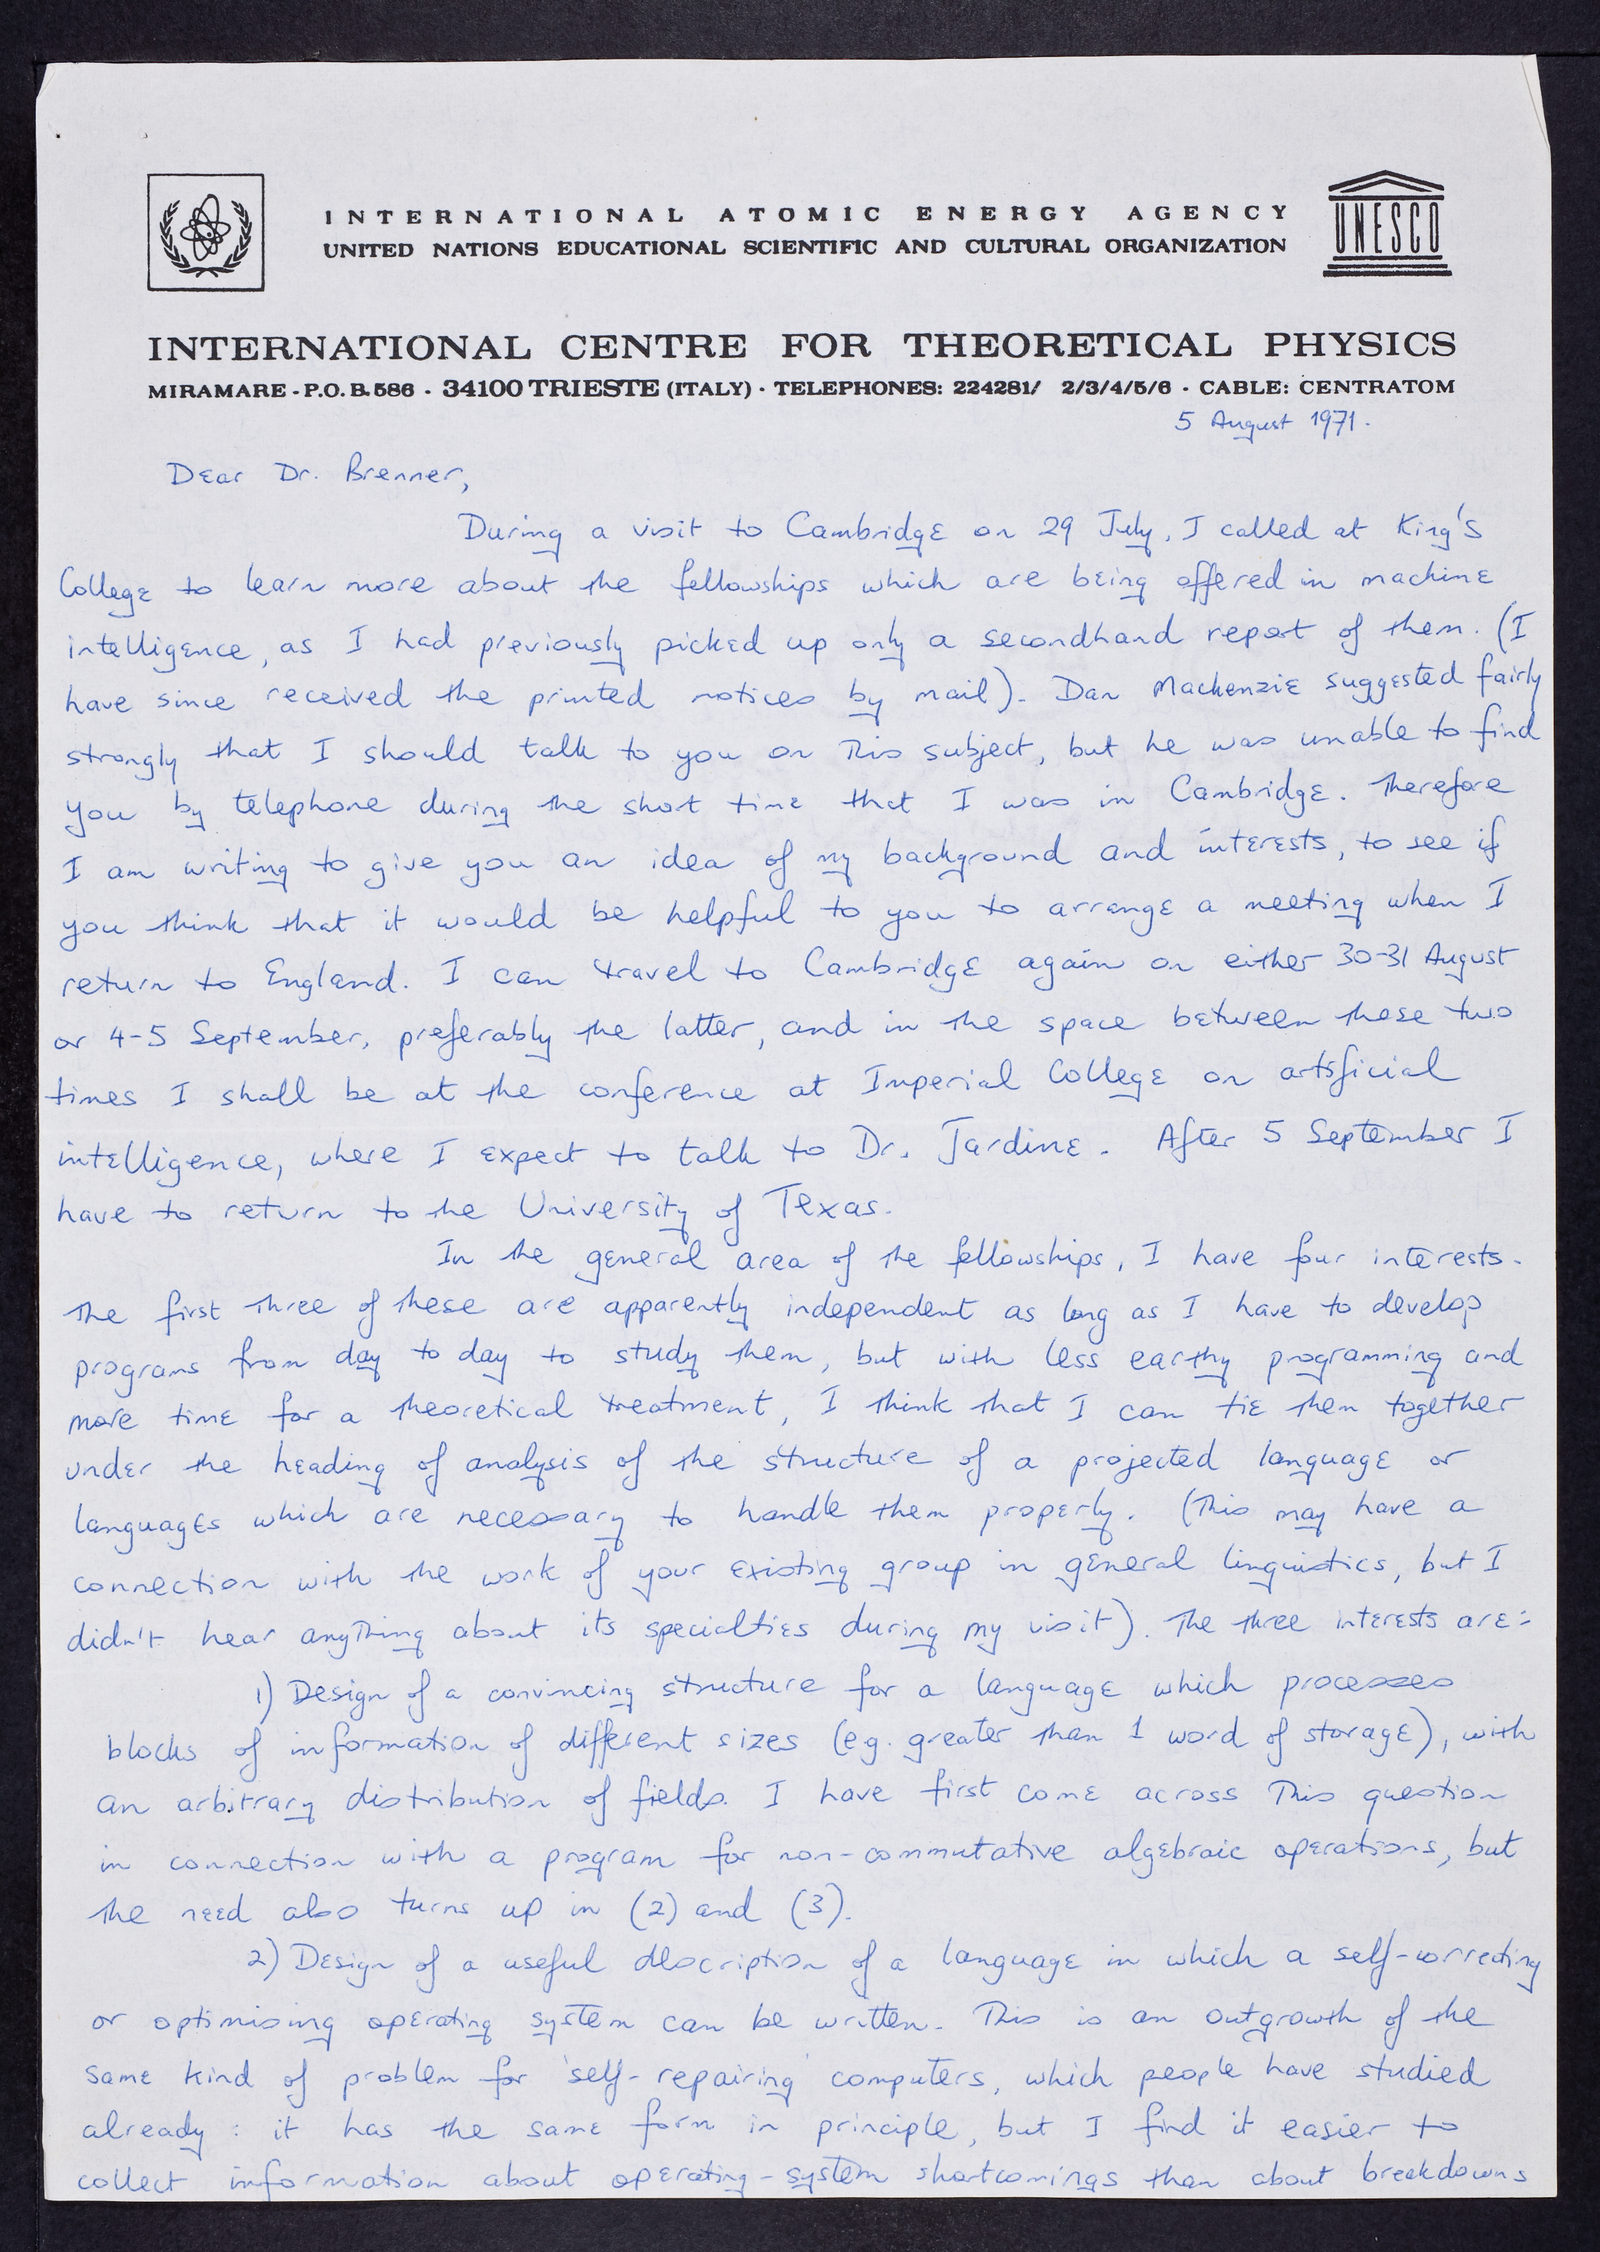 INTERNATIONAL ATOMIC ENERGY AGENCY
UNITED NATIONS EDUCATIONAL SCIENTIFIC AND CULTURAL ORGANIZATION
UNESCO
INTERNATIONAL CENTRE FOR THEORETICAL PHYSICS
MIRAMARE - P.O.B. 586 - 34100 TRIESTE (ITALY) · TELEPHONES: 224281/ 2/3/4/5/6 · CABLE: CENTRATOM
5 August 1971.
Dear Dr. Brenner,
During a visit to Cambridge on 29 July, I called at King's
College to learn more about the fellowships which are being offered in machine
intelligence, as I had previously picked up only a secondhand report of them. (I
have since received the printed notices by mail). Dan Mackenzie suggested fairly
strongly that I should talk to you on this subject, but he was unable to find
you by telephone during the short time that I was in Cambridge. Therefore
I am writing to give you an idea of my background and interests, to see if
you think that it would be helpful to you to arrange a meeting when I
return to England. I can travel to Cambridge again on either 30-31 August
or 4-5 September, preferably the latter, and in the space between these two
times I shall be at the conference at Imperial College on artificial
intelligence, where I expect to talk to Dr. Jardine. After 5 September I
have to return to the University of Texas.
In the general area of the fellowships, I have four interests.
The first three of these are apparently independent as long as I have to develop
programs from day to day to study them, but with less earthy programming and
more time for a theoretical treatment, I think that I can tie them together
under the heading of analysis of the structure of a projected language or
languages which are necessary to handle them properly. (This may have a
connection with the work of your existing group in general linguistics, but I
didn't hear anything about its specialties during my visit). The three interests are:
1) Design of a convincing structure for a language which processes
blocks of information of different sizes (e.g. greater than 1 word of storage), with
an arbitrary distribution of fields. I have first come across this question
in connection with a program for non-commutative algebraic operations, but
the need also turns up in (2) and (3).
2) Design of a useful description of a language in which a self-correcting
or optimising operating system can be written. This is an outgrowth of the
same kind of problem for 'self-repairing' computers, which people have studied
already: it has the same form in principle, but I find it easier to
collect information about operating-system shortcomings than about breakdowns